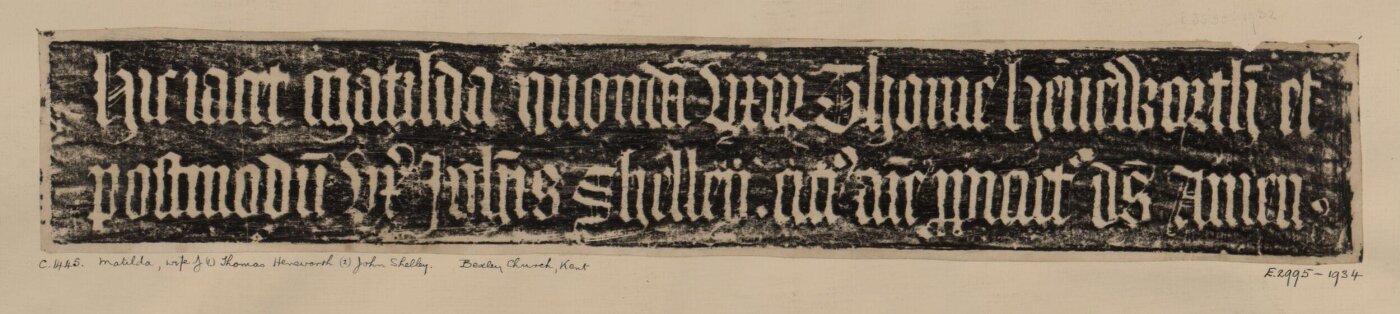 hic iacet Matilda quondā vxor Thome hēnēdworth et
postmodū vx' Joħis Shelley . cui' aīe ppiciet' ds̄ Amen .
C. 1445. Matilda, wife of (1) Thomas Hensworth (2) John Shelley. Bexley Church, Kent
E.2995 - 1934